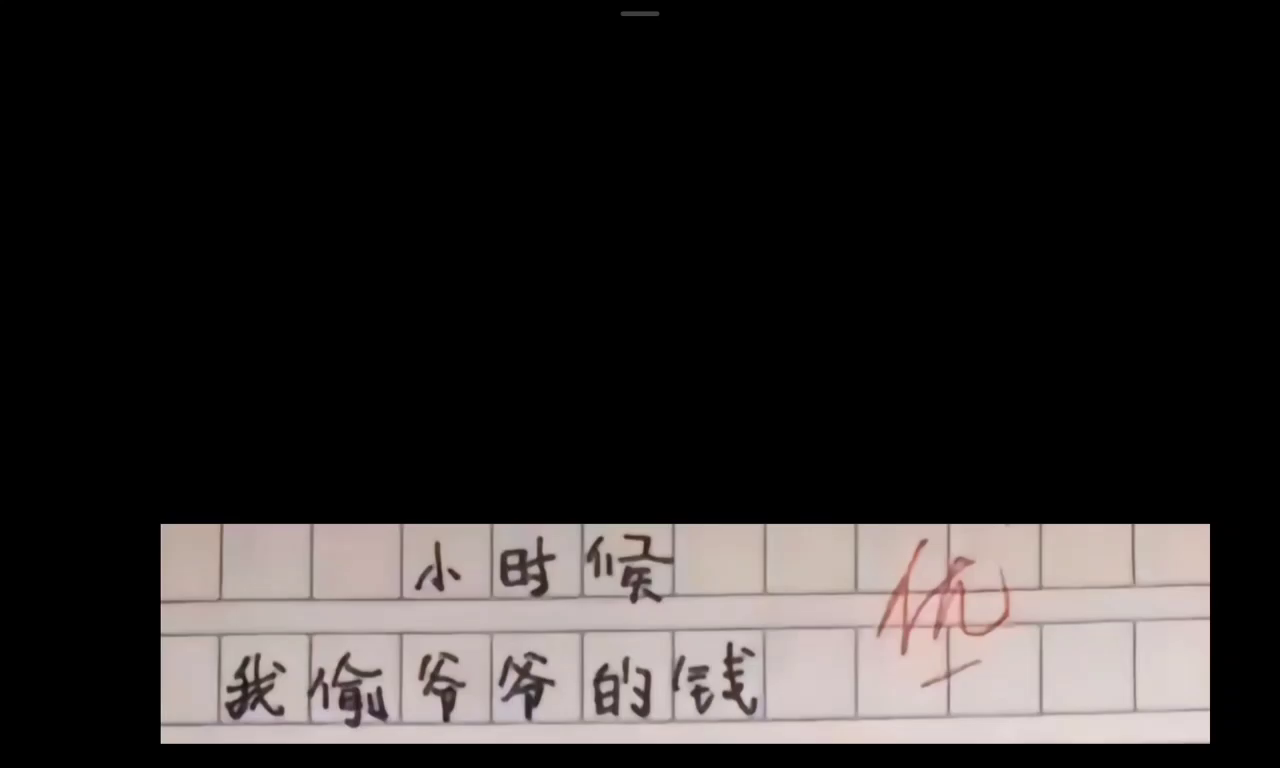 小时候
优
我偷爷爷的钱